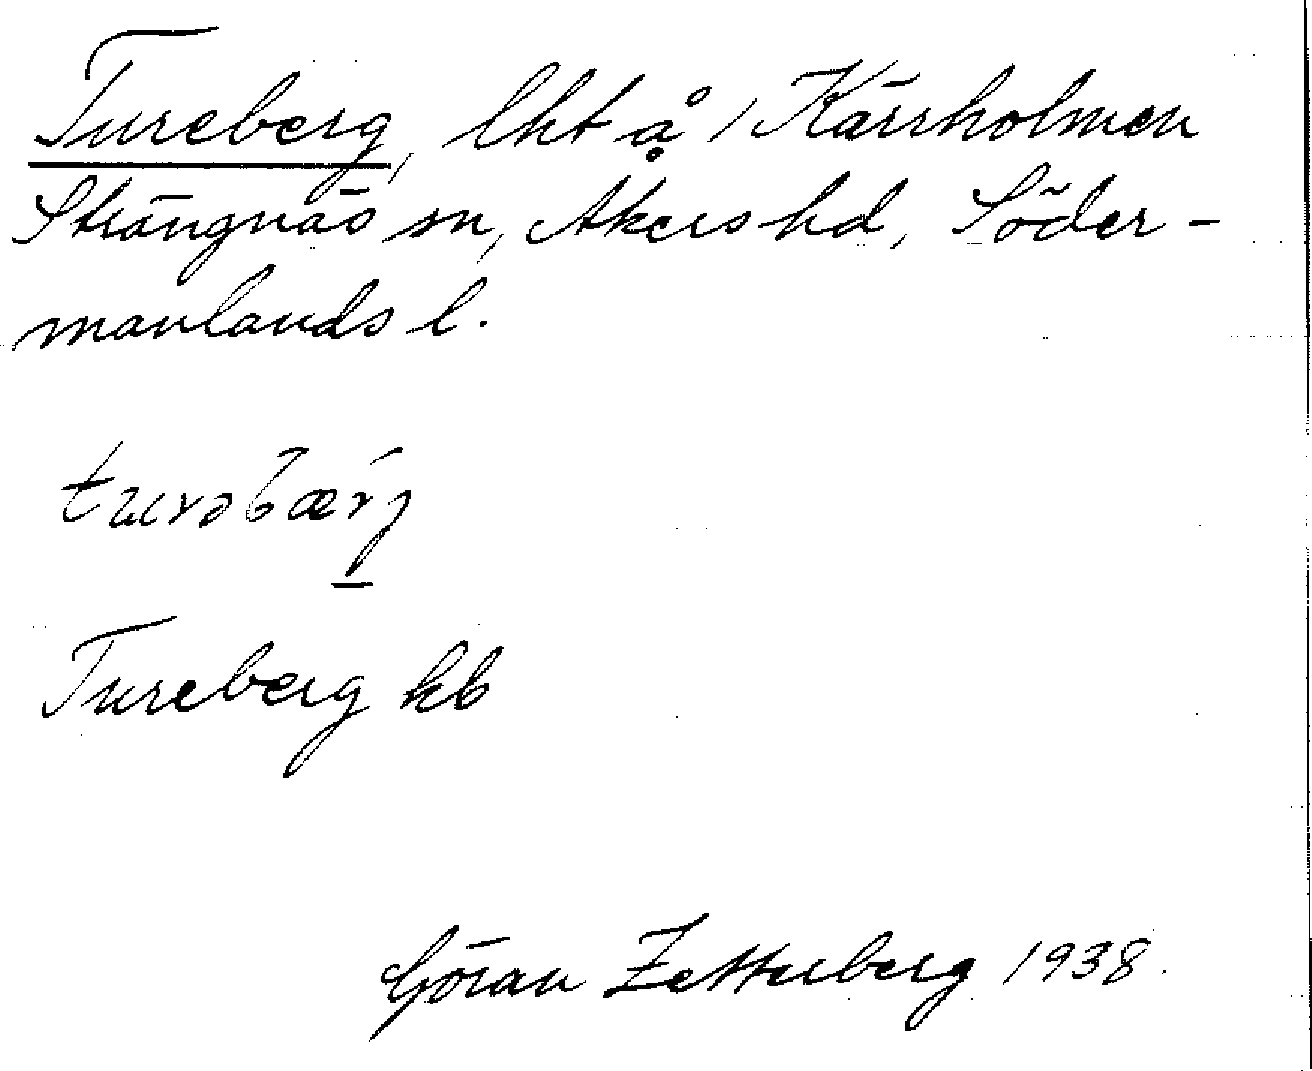 Tureberg, lht å 1 Kärrholmen
Strängnäs sn, Åkers hd, Söder-
manlands l.
turəbær̀j
Tureberg kb
Göran Zetterberg 1938.